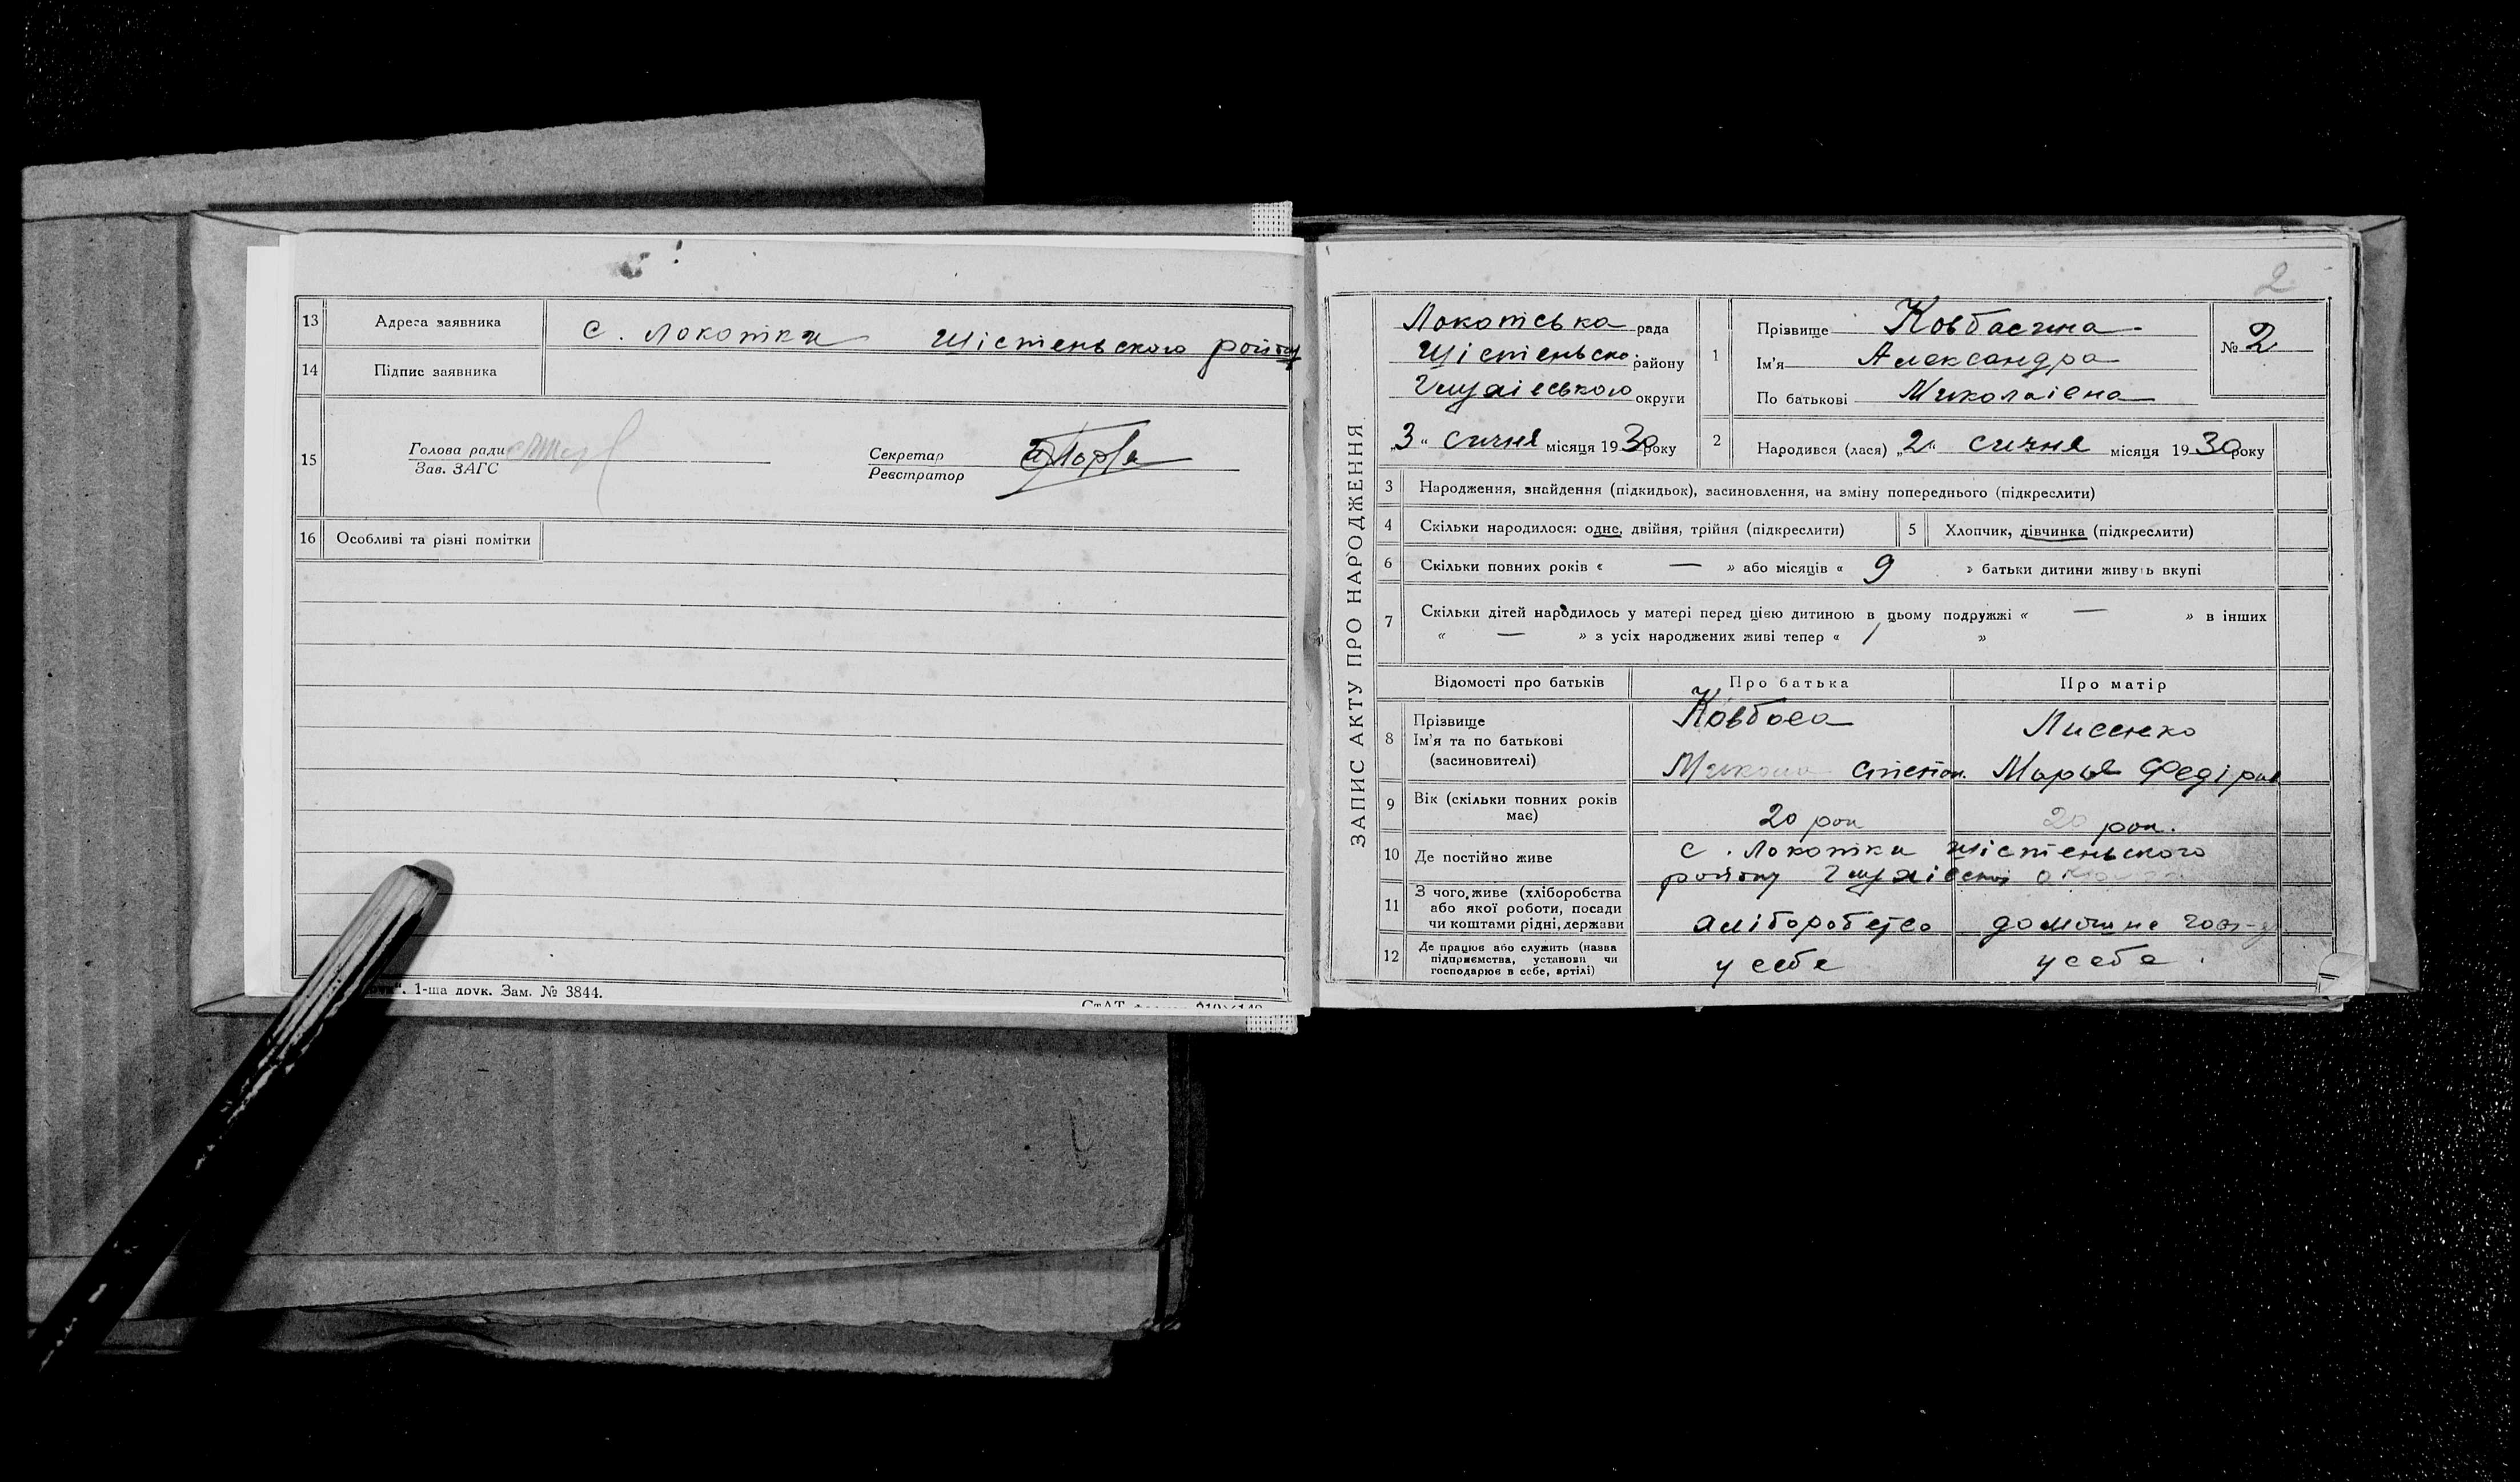 13 Адреса заявника с. Локотки Шістенського району
14 Підпис заявника
15 Голова ради
Зав. ЗАГС
Секретар
Реєстратор
16 Особливі та різні помітки
1-ша друк. Зам. № 3844.
2
ЗАПИС АКТУ ПРО НАРОДЖЕННЯ
Локотська рада
Шістеньско. району
Глухівського округи
„3“ січня місяця 1930 року
1 Прізвище Ковбасина
Ім'я Александра
По батькові Миколаівна
№ 2
2 Народився (лася) „2“ січня місяця 1930 року
3 Народження, знайдення (підкидьок), засиновлення, на зміну попереднього (підкреслити)
4 Скільки народилося: одне, двійня, трійня (підкреслити)
5 Хлопчик, дівчинка (підкреслити)
6 Скільки повних років « — » або місяців « 9 » батьки дитини живуть вкупі
7 Скільки дітей народилось у матері перед цією дитиною в цьому подружжі « — » в інших
« — » з усіх народжених живі тепер « 1 »
Відомості про батьків Про батька Про матір
8 Прізвище Ковбаса Лисенко
Ім'я та по батькові
(засиновителі) Микола Степан. Марья Федіров
9 Вік (скільки повних років
має) 20 рок 20 рок.
10 Де постійно живе с. Локотки Шістеньского
району Глухівскої
11 З чого живе (хліборобства
або якої роботи, посади
чи коштами рідні, держави хліборобство домашнє
12 Де працює або служить (назва
підприємства, установи чи
господарює в себе, артілі) у себе у себе.